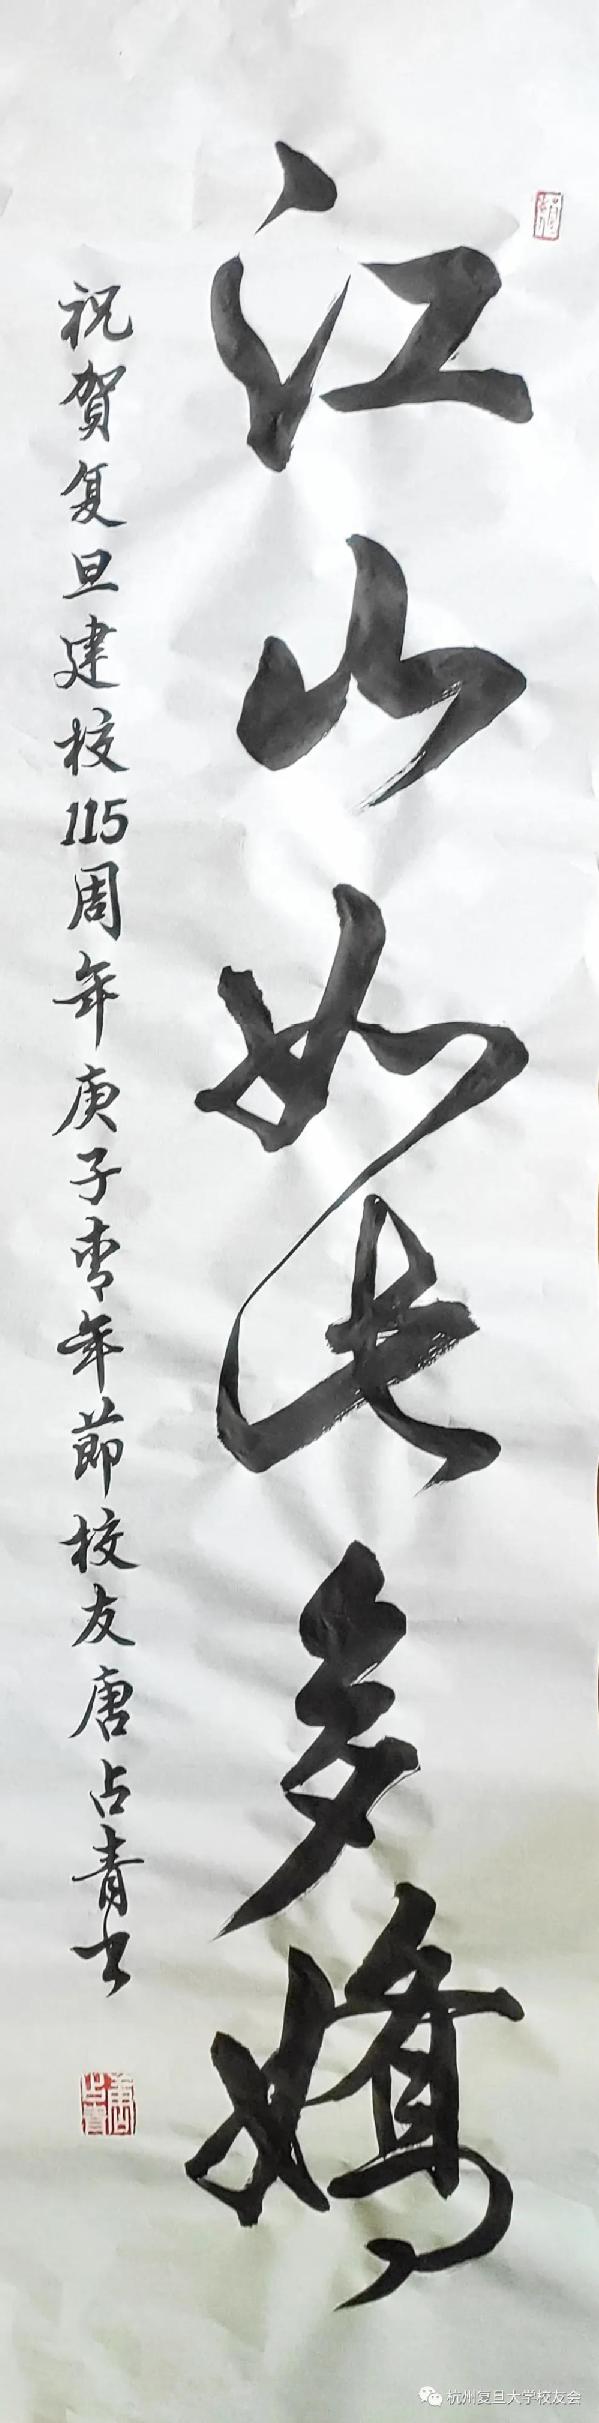 江山如此多嬌
祝贺复旦建校115周年庚子青年節校友唐占青书
杭州复旦大学校友会